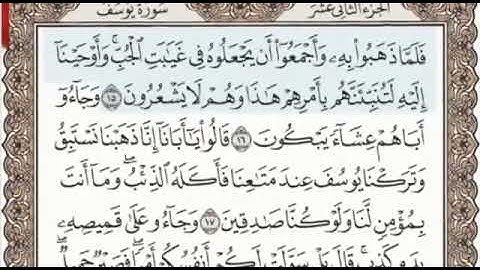 الجزء الثاني عشر
سورة يوسف
فَلَمَّا ذَهَبُوا۟ بِهِۦ وَأَجْمَعُوٓا۟ أَن يَجْعَلُوهُ فِى غَيَٰبَتِ ٱلْجُبِّ ۚ وَأَوْحَيْنَآ
إِلَيْهِ لَتُنَبِّئَنَّهُم بِأَمْرِهِمْ هَٰذَا وَهُمْ لَا يَشْعُرُونَ ١٥ وَجَآءُو
أَبَاهُمْ عِشَآءً يَبْكُونَ ١٦ قَالُوا۟ يَٰٓأَبَانَآ إِنَّا ذَهَبْنَا نَسْتَبِقُ
وَتَرَكْنَا يُوسُفَ عِندَ مَتَٰعِنَا فَأَكَلَهُ ٱلذِّئْبُ ۖ وَمَآ أَنتَ
بِمُؤْمِنٍ لَّنَا وَلَوْ كُنَّا صَٰدِقِينَ ١٧ وَجَآءُو عَلَىٰ قَمِيصِهِۦ
بِدَمٍ كَذِبٍ ۚ قَالَ بَلْ سَوَّلَتْ لَكُمْ أَنفُسُكُمْ أَمْرًا ۖ فَصَبْرٌ جَمِيلٌ ۖ